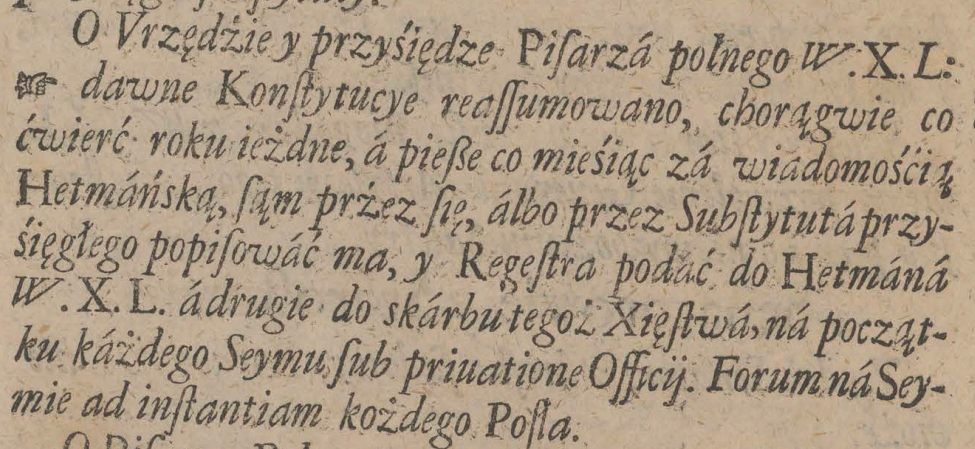 O Vrzędźie y przyśiędze Piſarzá polnego W. X. L:
☞ dawne Konſtytucye reaſſumowano, chorągwie co
ćwierć roku ieżdne, á pieſze co mieśiąc zá wiadomośćią
Hetmáńską, ſąm przez ſię, álbo przez Subſtytutá przy-
śięgłego popiſowáć ma, y Regeſtra podać do Hetmáná
W. X. L. á drugie do skárbu tegoż Xięſtwá, ná począt-
ku káżdego Seymu ſub priuatione Officij. Forum ná Sey-
mie ad inſtantiam kożdego Poſła.